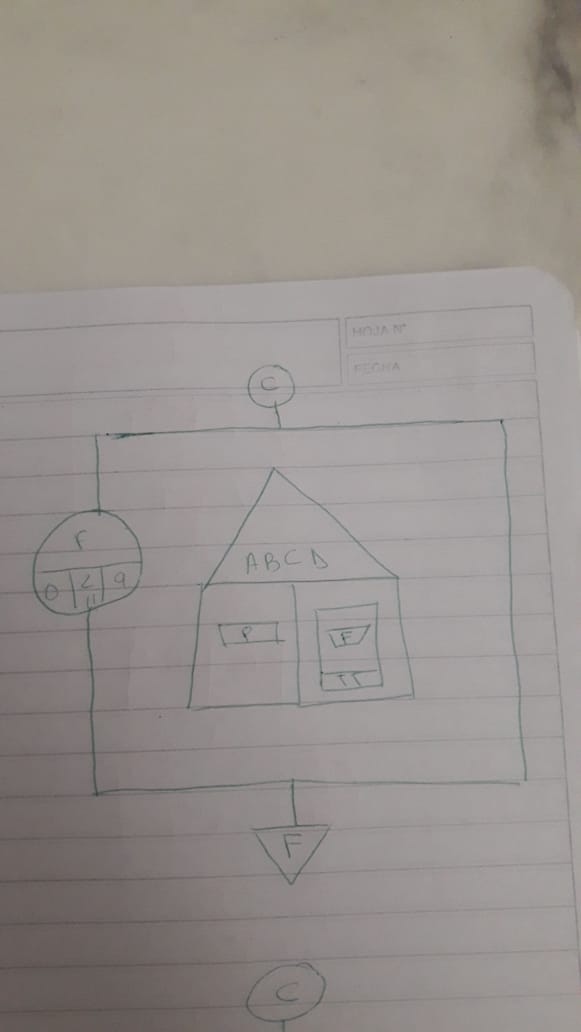 HOJA N°
FECHA
C
F
0 2 9
11
ABCD
P
F
TT
F
C